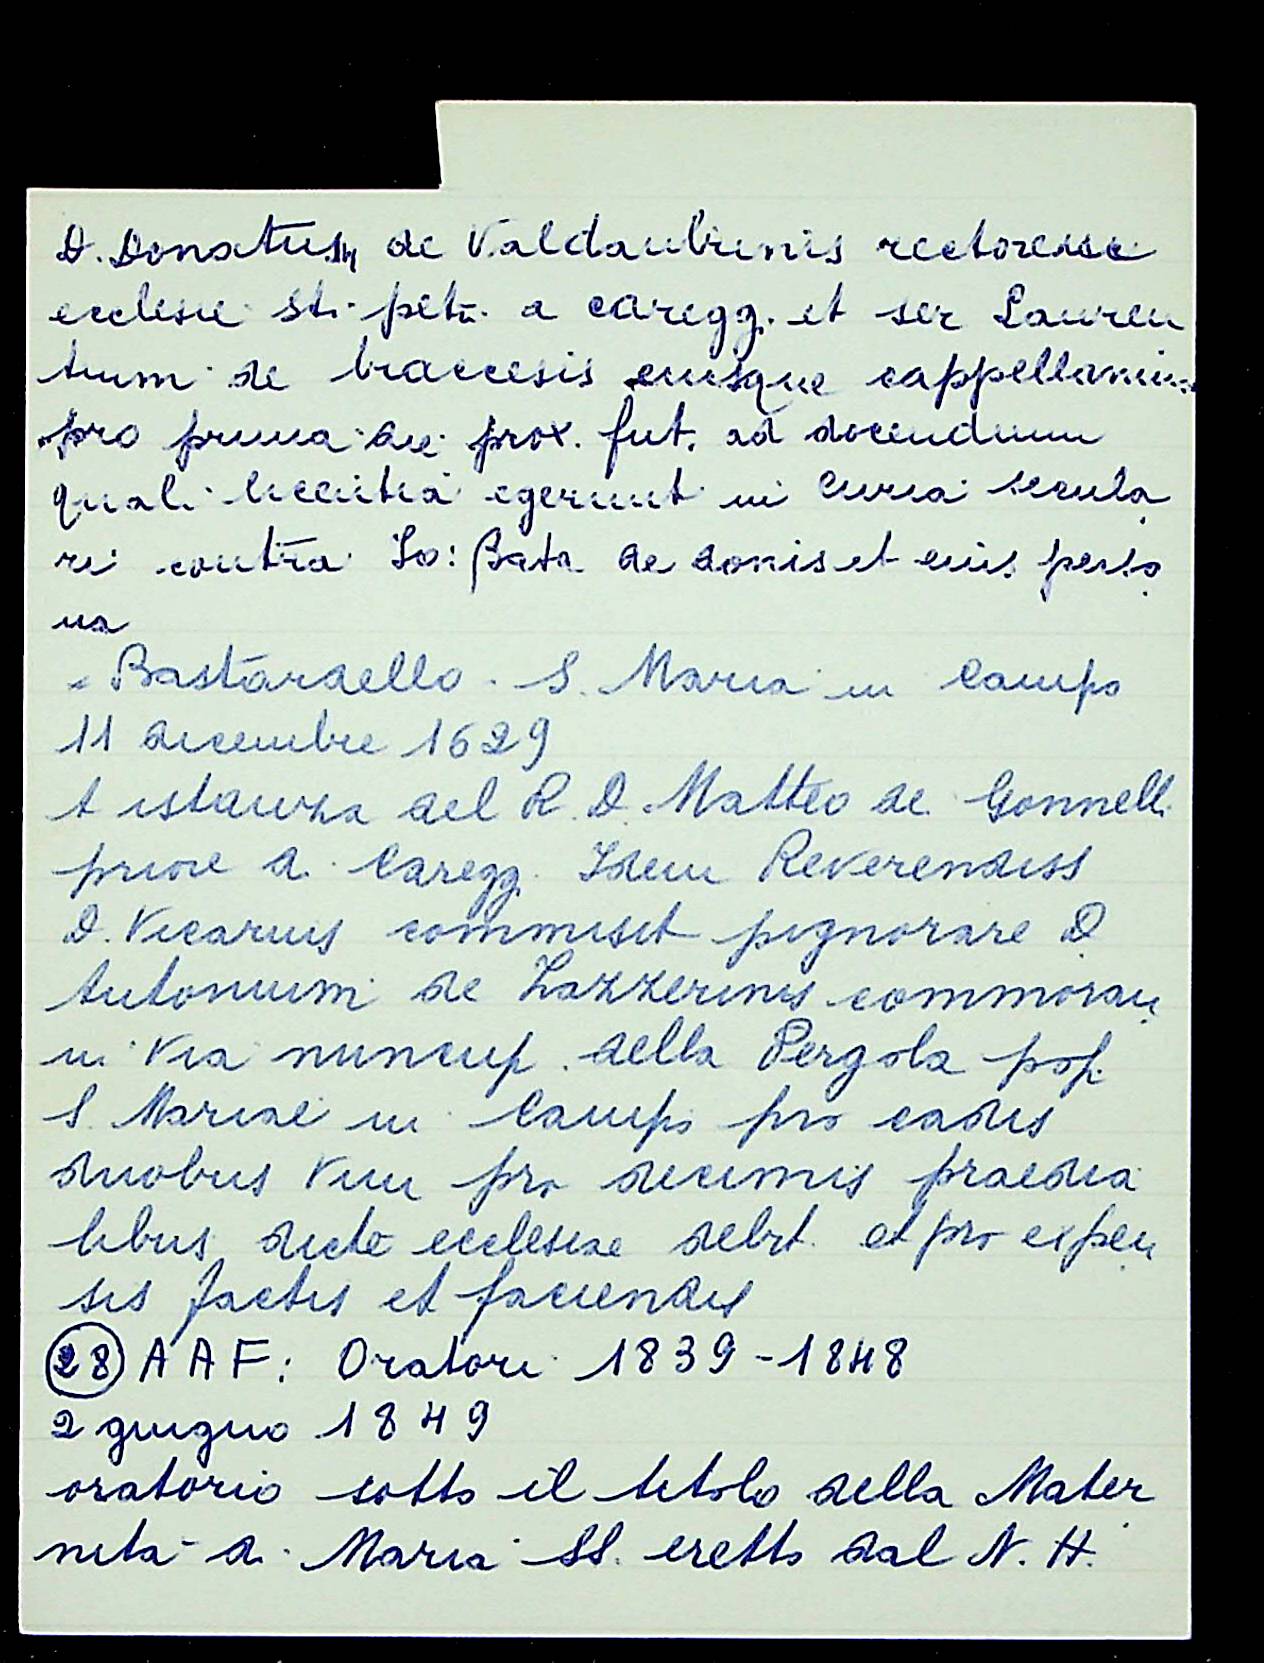 D. Donatus de Valdaubrinis rectoresse
ecclesie sti. petri a caregg. et ser Lauren
tium de braccesis eiusque cappellanum
pro prima die prox. fut. ad docendum
quali licentia egerunt in curia secula
ri contra Io: Bata de donis et eius perso
na
Bastardello. S. Maria in Campo
11 dicembre 1629
A istanza del R. D. Matteo de Gonnelli
priore di Caregg. Idem Reverendiss
D. Vicarius commisit pignorare D
Antonium de Lazzerinis commoran
in Via nuncup. della Pergola pop.
S. Mariae in Campo pro cadis
duobus vini pro decimis praedia
libus dicte ecclesiae debit. et pro expen
sis factis et faciendis
28 A A F: Oratori 1839-1848
2 giugno 1849
oratorio sotto il titolo della Mater
nità di Maria SS. eretto dal N. H.